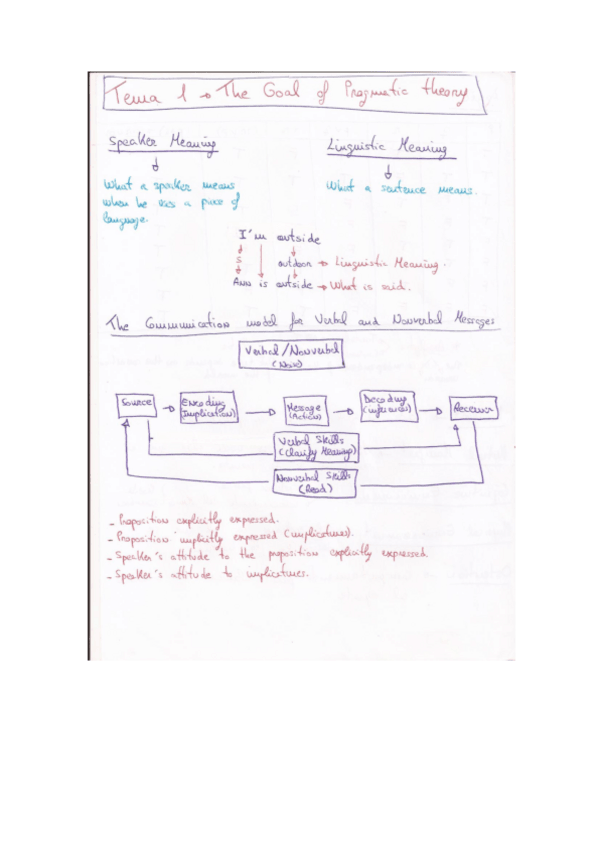 Tema 1 → The Goal of Pragmatic theory
Speaker Meaning
Linguistic Meaning
What a speaker means
when he uses a piece of
language.
What a sentence means.
I'm outside
S outdoor → Linguistic Meaning.
Ann is outside → What is said.
The Communication model for Verbal and Nonverbal Messages
Verbal/Nonverbal
(Noise)
Source → Encoding (Implication) → Message (Action) → Decoding (Inference) → Receiver
Verbal Skills
(Clarify Meaning)
Nonverbal Skills
(Read)
- Proposition explicitly expressed.
- Proposition implicitly expressed (implicatures).
- Speaker's attitude to the proposition explicitly expressed.
- Speaker's attitude to implicatures.